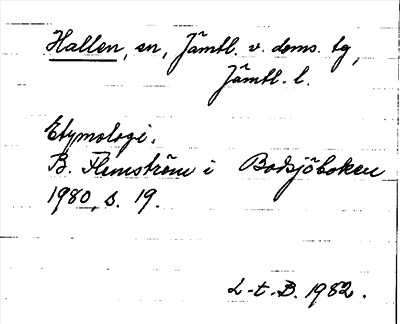 Hallen, en, Jämtl. v. doms. tg,
Jämtl. l.
Etymologi:
B. Flemström i Bodsjöboken
1980, s. 19.
L-t-B. 1982.